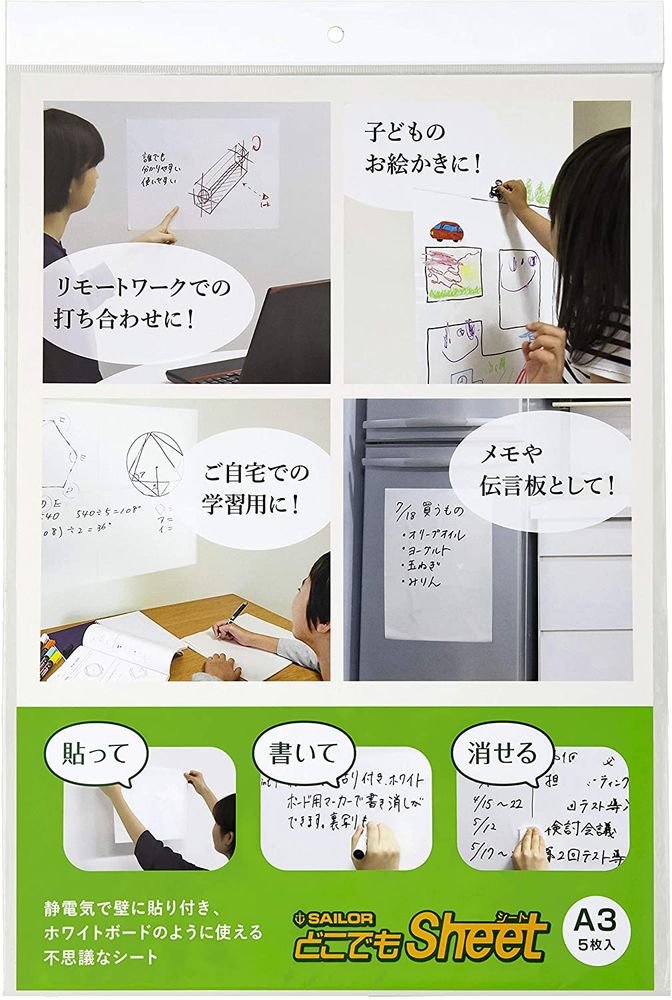 誰でも
分かりやすい
使いやすい
リモートワークでの
打ち合わせに！
子どもの
お絵かきに！
540÷5=108°
)÷2=36°
ご自宅での
学習用に！
メモや
伝言板として！
7/18 買うもの
・オリーブオイル
・ヨーグルト
・玉ねぎ
・みりん
貼って
書いて
り付き、ホワイト
ボード用マーカーで書き消しが
できます。裏写りも
消せる
担
ーティング
4/15〜22
回テスト導入
5/12
検討会議
5/17〜
第2回テスト導
静電気で壁に貼り付き、
ホワイトボードのように使える
不思議なシート
SAILOR
どこでもSheet
シート
A3
5枚入